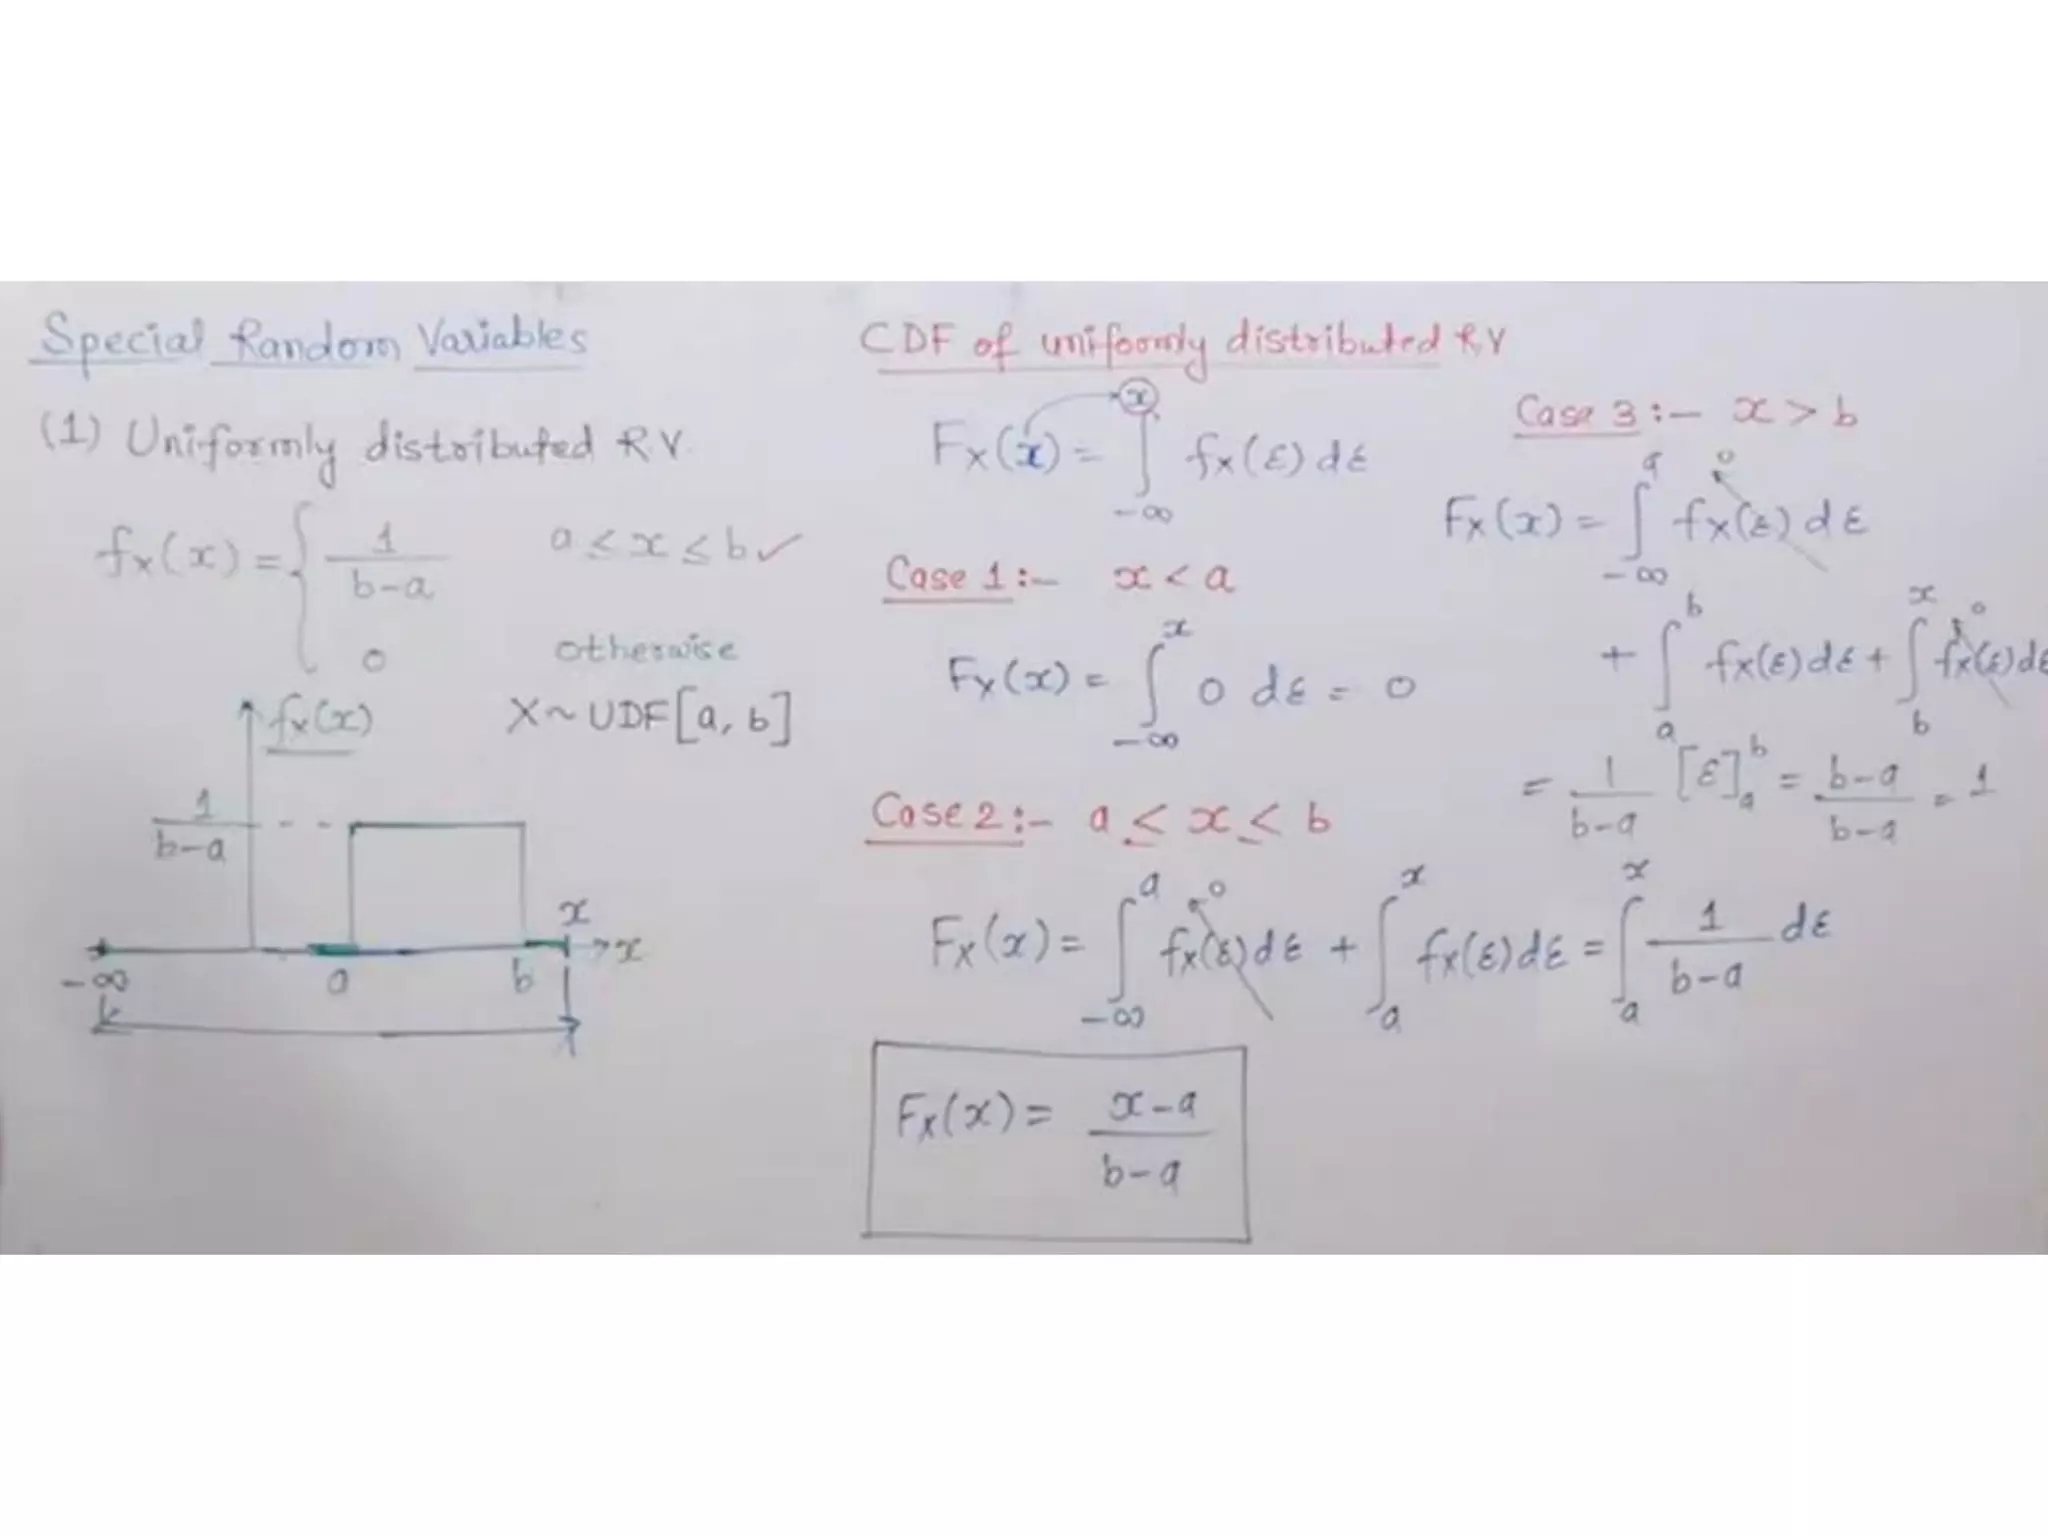 Special Random Variables
(1) Uniformly distributed R.V.
fx(x) = { 1/(b-a)   a ≤ x ≤ b ✓
0   otherwise
X ~ UDF[a, b]
fx(x)
1/(b-a)
x
→ x
-∞   a   b
CDF of uniformly distributed RV
Fx(x) = ∫_{-∞}^{x} fx(ε) dε
Case 1 :- x < a
Fx(x) = ∫_{-∞}^{x} 0 dε = 0
Case 2 :- a ≤ x ≤ b
Fx(x) = ∫_{-∞}^{a} fx(ε) dε → 0 + ∫_{a}^{x} fx(ε) dε = ∫_{a}^{x} 1/(b-a) dε
Fx(x) = (x-a)/(b-a)
Case 3 :- x > b
Fx(x) = ∫_{-∞}^{a} fx(ε) dε → 0
+ ∫_{a}^{b} fx(ε) dε + ∫_{b}^{x} fx(ε) dε → 0
= 1/(b-a) [ε]_{a}^{b} = (b-a)/(b-a) = 1